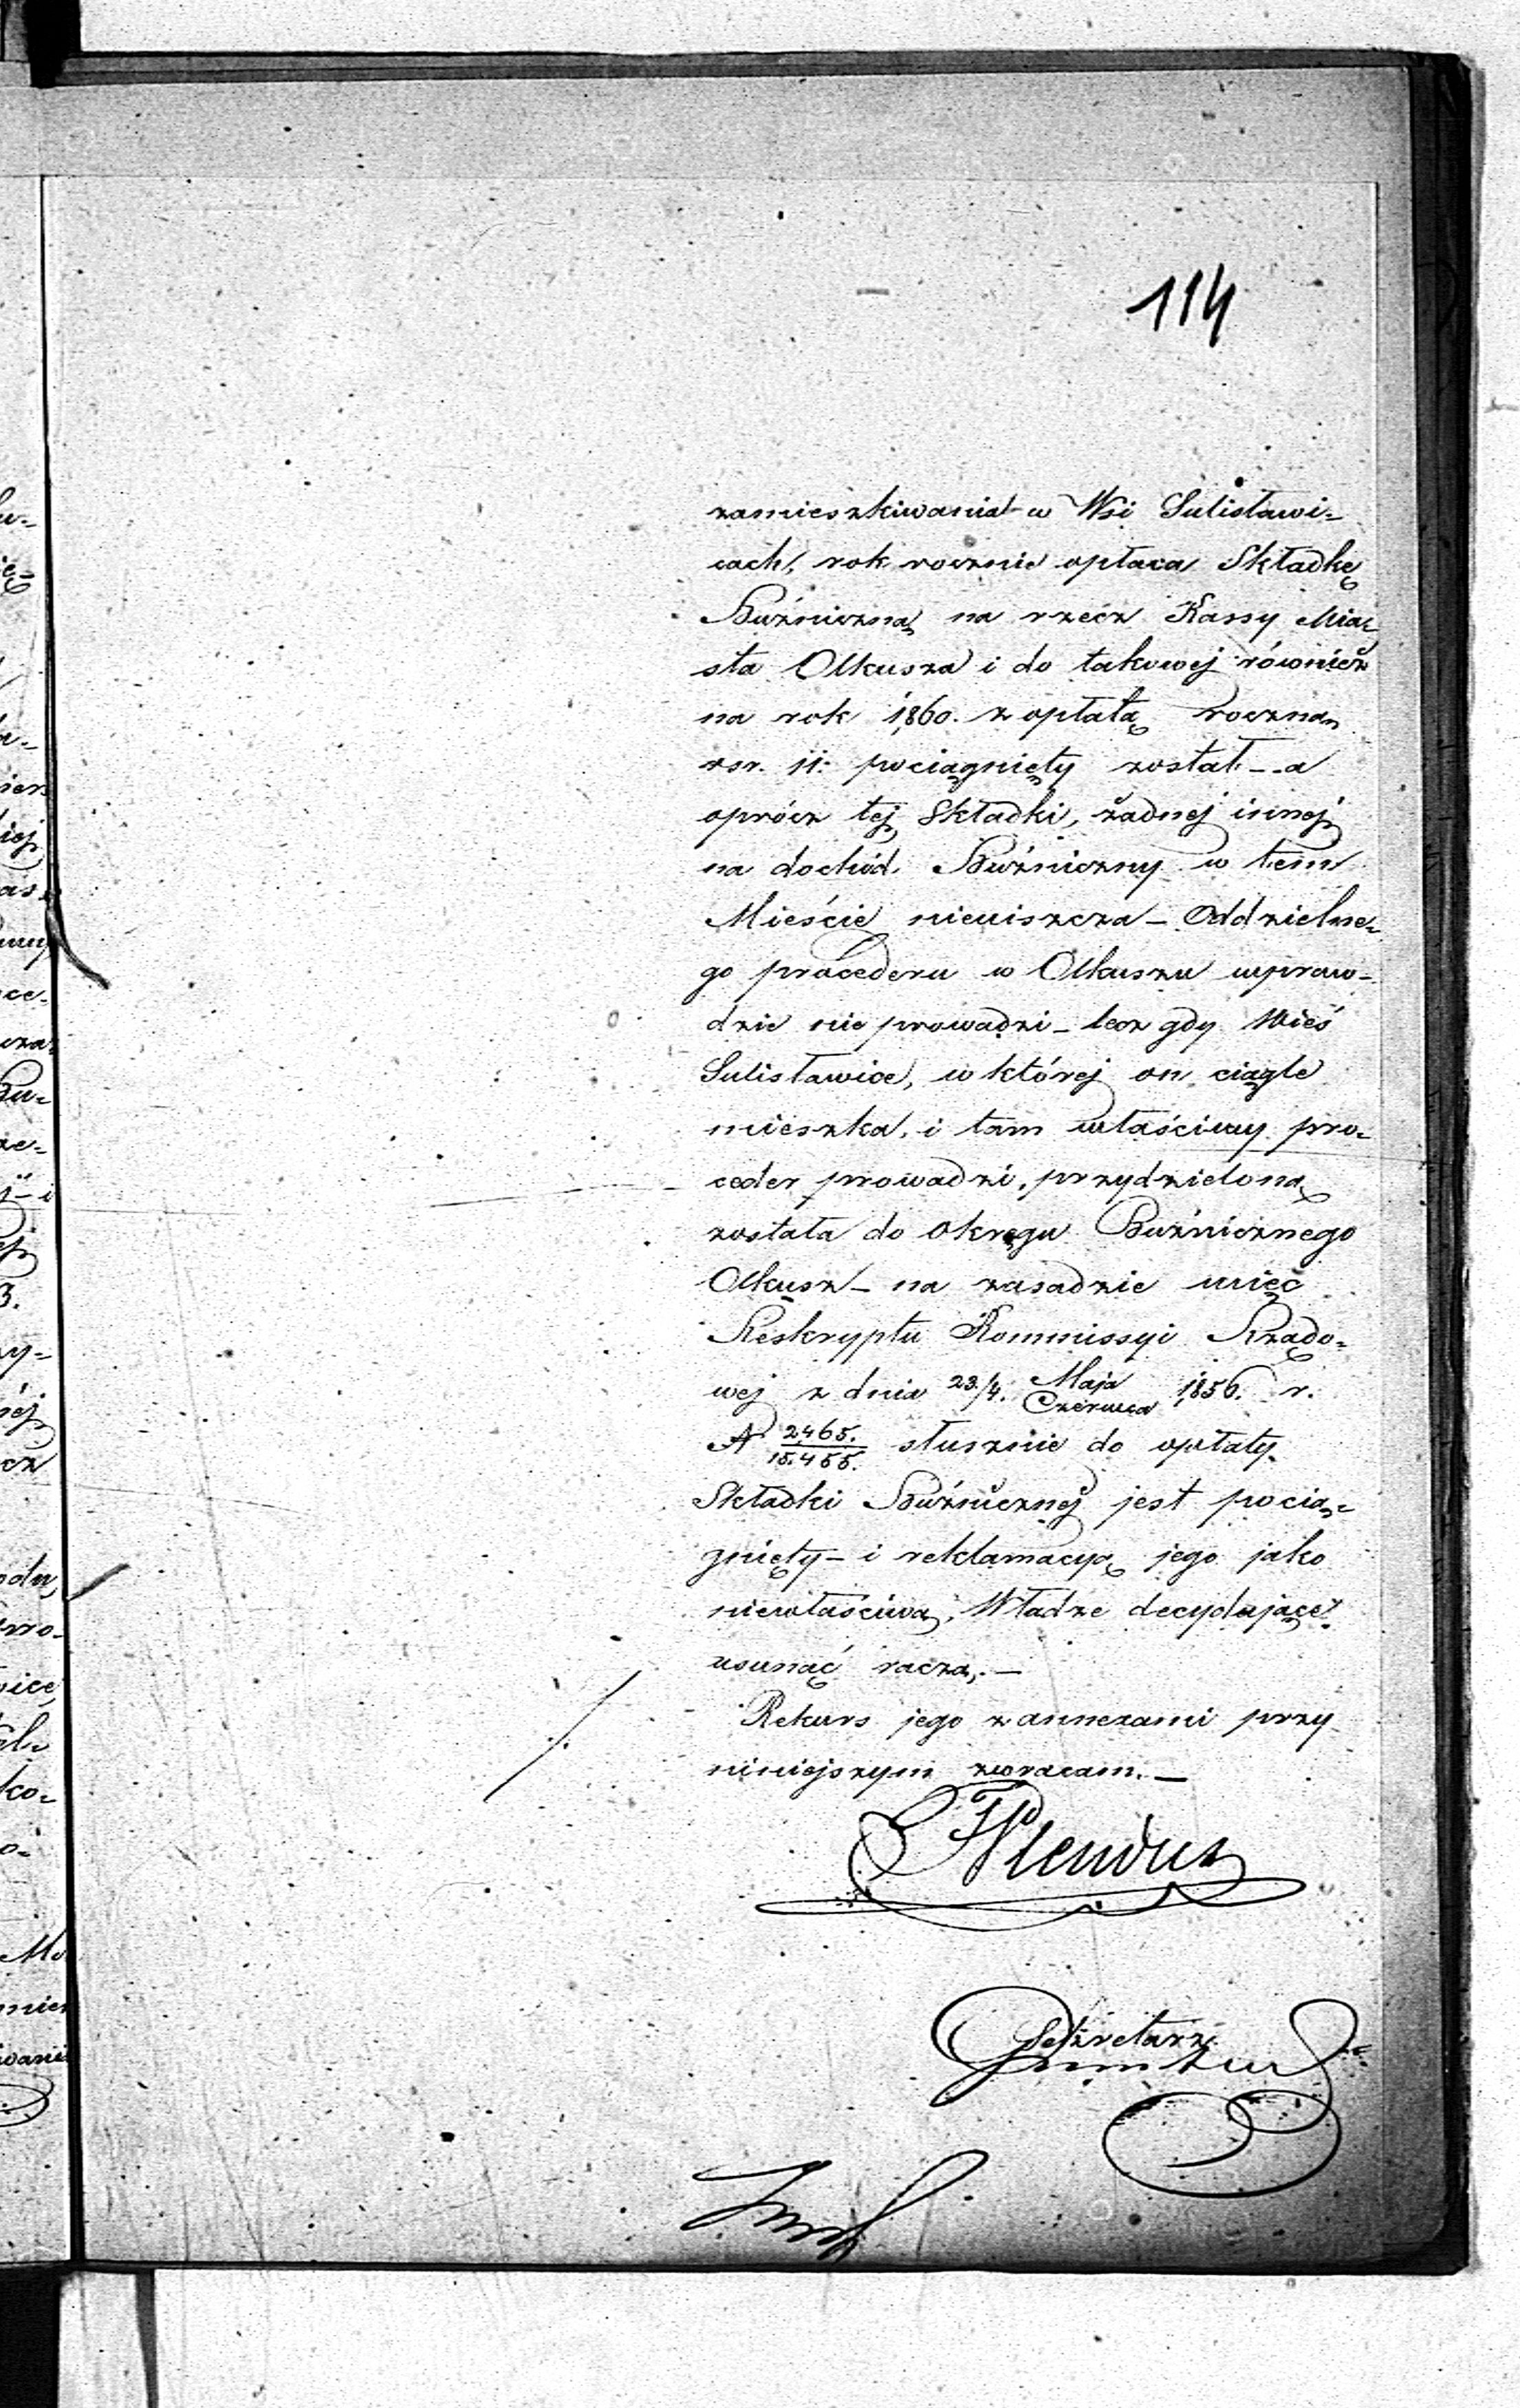 114
zamieszkiwania w Wsi Sulisławi=
cach, rok rocznie opłaca Składkę
Bużniczną na rzecz Kassy Mia=
sta Olkusza i do takowej również
na rok 1860. z opłatą roczną
rsr. 11: pociągnięty został – a
oprócz tej Składki, żadnej innej
na dochód Bużniczny w tem
Mieście nieuiszcza – Oddzielne=
go procederu w Olkuszu wpraw=
dzie nie prowadzi – lecz gdy Wieś
Sulisławice, w której on ciągle
mieszka, i tam właściwy pro=
ceder prowadzi, przydzieloną
została do Okręgu Bużnicznego
Olkusz – na zasadzie więc
Reskryptu Kommissyi Rządo=
wej z dnia 23/4. Maja Czerwca 1856. r.
N 2465./15.455. słusznie do opłaty
Składki Bużnicznej jest pocią=
gnięty – i reklamacyą jego jako
niewłaściwą, Władze decydujące
usunąć raczą. –
Rekurs jego z annexami przy
niniejszym zwracam. –
Sekretarz